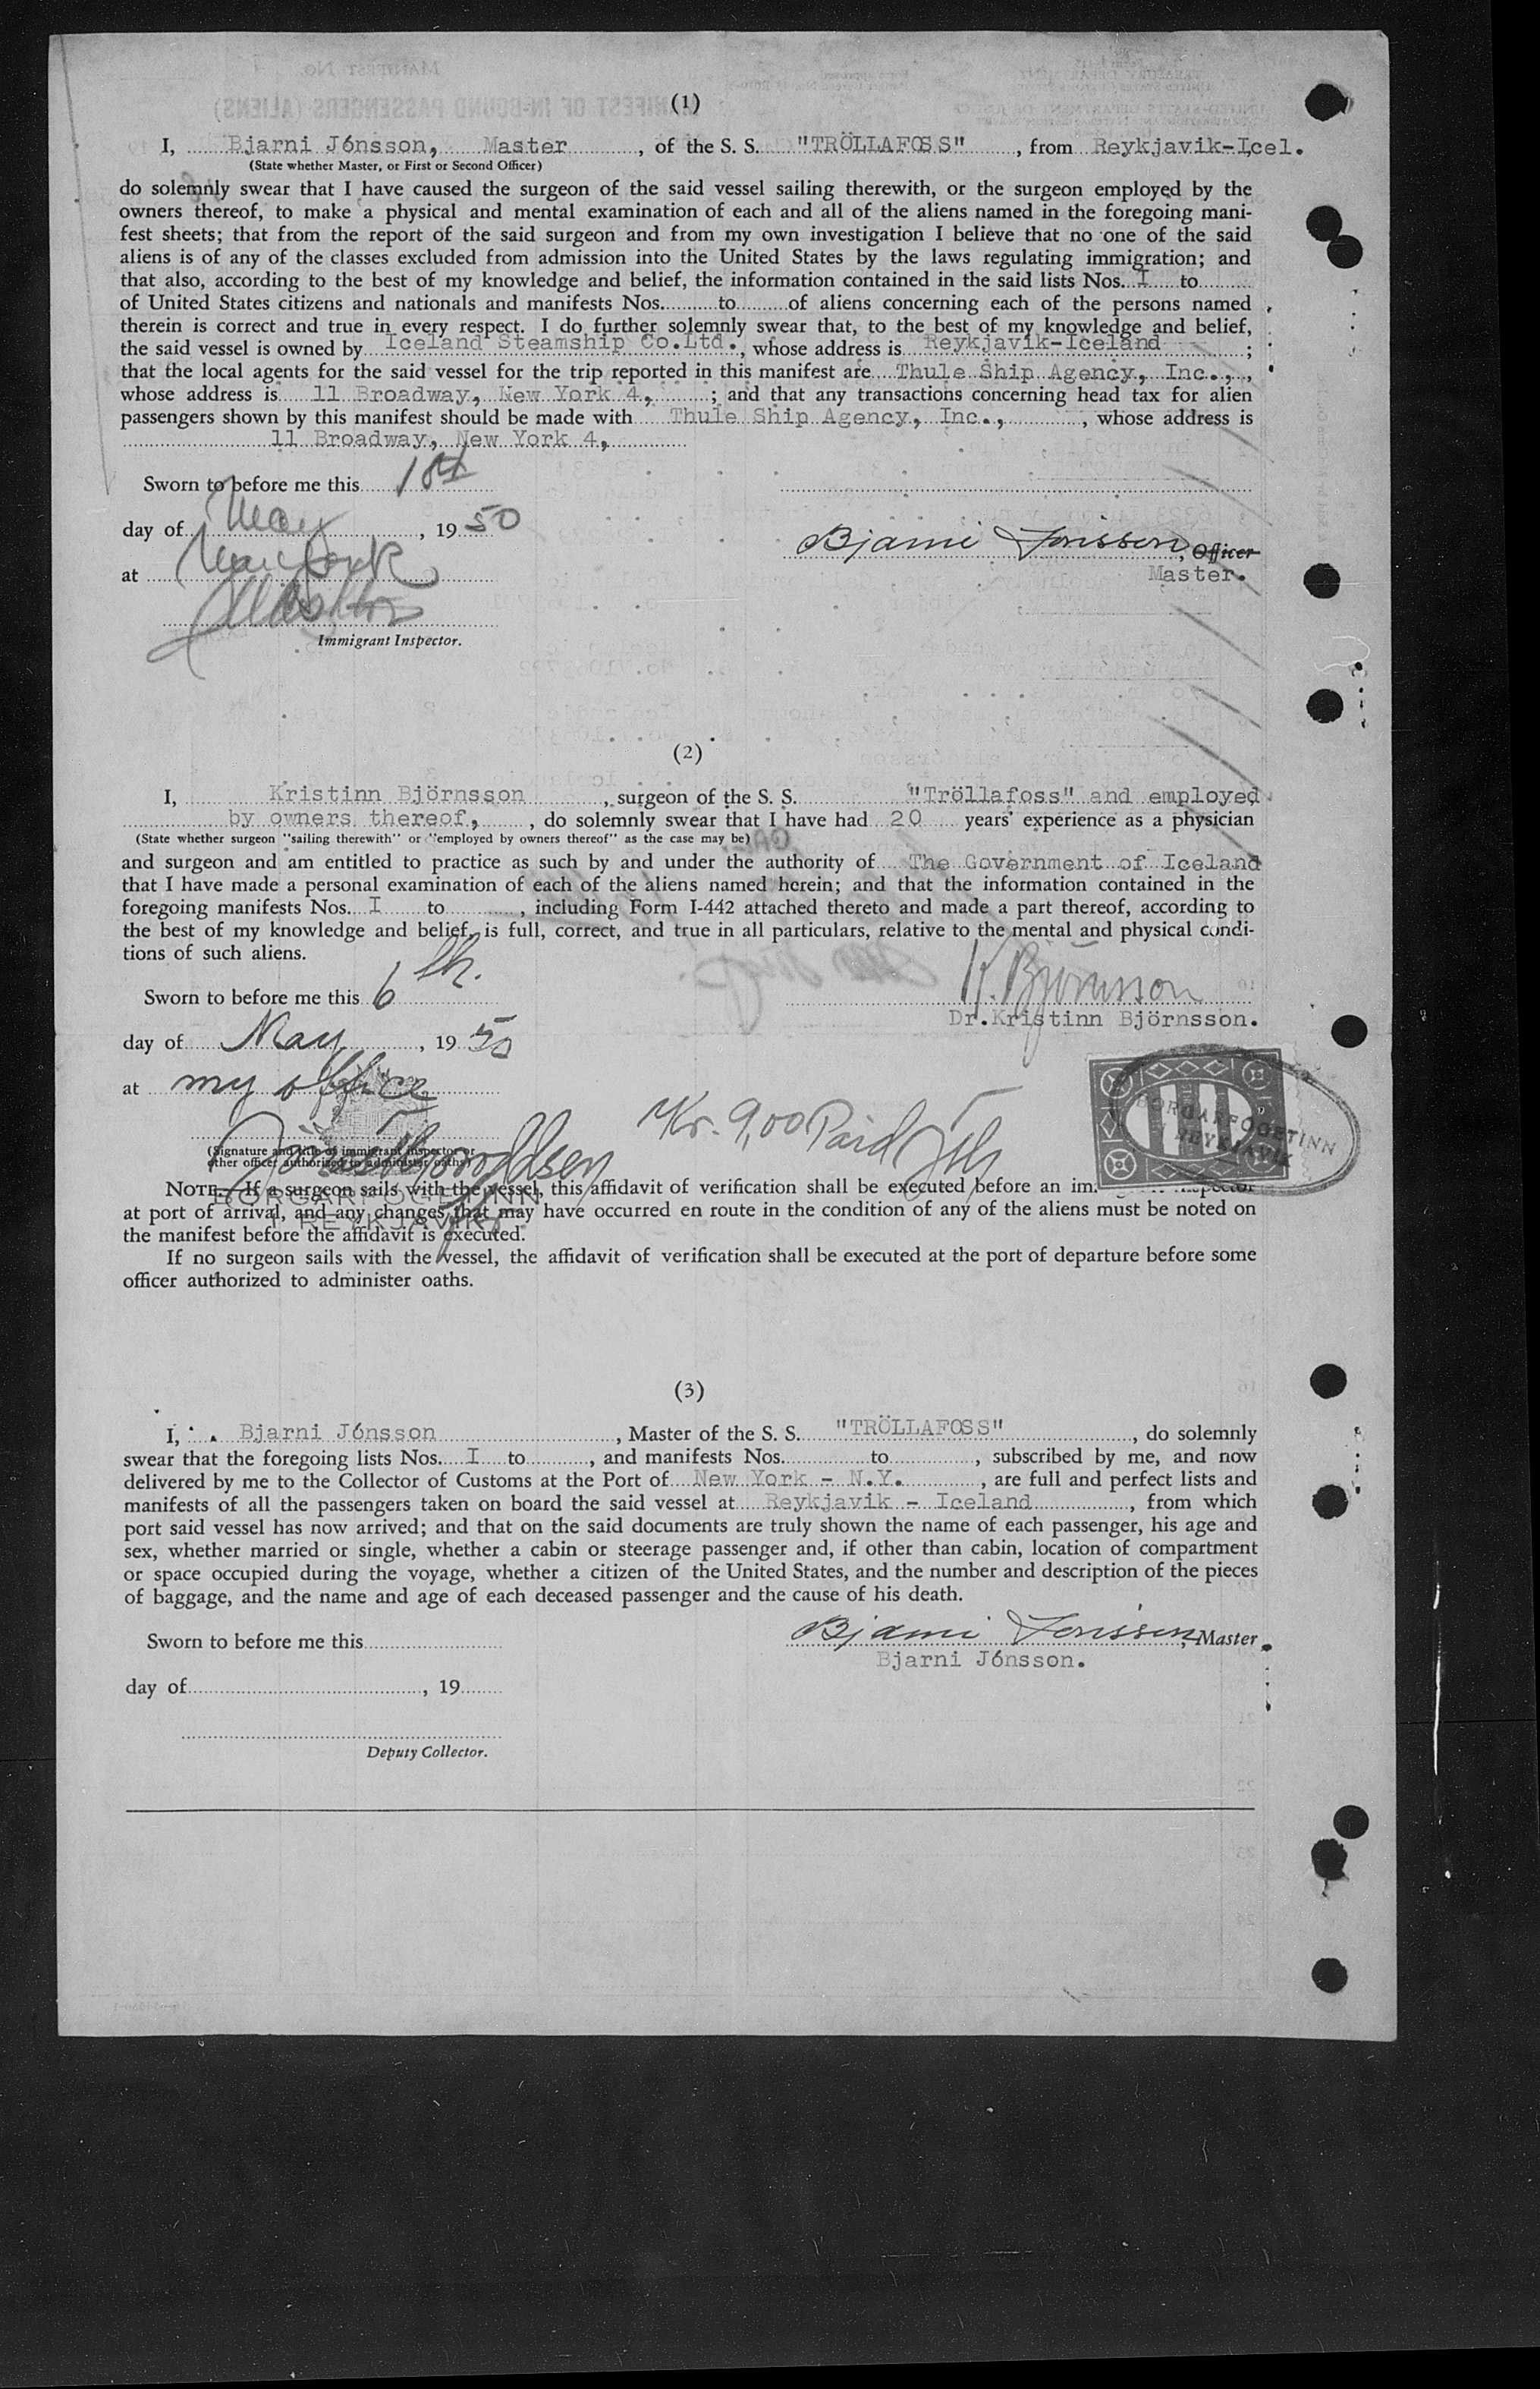 (1)
I, Bjarni Jónsson, Master, of the S. S. "TRÖLLAFOSS", from Reykjavik-Icel.
(State whether Master, or First or Second Officer)
do solemnly swear that I have caused the surgeon of the said vessel sailing therewith, or the surgeon employed by the
owners thereof, to make a physical and mental examination of each and all of the aliens named in the foregoing mani-
fest sheets; that from the report of the said surgeon and from my own investigation I believe that no one of the said
aliens is of any of the classes excluded from admission into the United States by the laws regulating immigration; and
that also, according to the best of my knowledge and belief, the information contained in the said lists Nos. I to
of United States citizens and nationals and manifests Nos. to of aliens concerning each of the persons named
therein is correct and true in every respect. I do further solemnly swear that, to the best of my knowledge and belief,
the said vessel is owned by Iceland Steamship Co.Ltd., whose address is Reykjavik-Iceland ;
that the local agents for the said vessel for the trip reported in this manifest are Thule Ship Agency, Inc.,,
whose address is 11 Broadway, New York 4, ; and that any transactions concerning head tax for alien
passengers shown by this manifest should be made with Thule Ship Agency, Inc., , whose address is
11 Broadway, New York 4,
Sworn to before me this
day of May, 19 50
Bjarni Jónsson, Officer
Master.
at New York
Immigrant Inspector.
(2)
I, Kristinn Björnsson, surgeon of the S. S. "Tröllafoss" and employed
by owners thereof, , do solemnly swear that I have had 20 years' experience as a physician
(State whether surgeon "sailing therewith" or "employed by owners thereof" as the case may be)
and surgeon and am entitled to practice as such by and under the authority of The Government of Iceland
that I have made a personal examination of each of the aliens named herein; and that the information contained in the
foregoing manifests Nos. I to , including Form I-442 attached thereto and made a part thereof, according to
the best of my knowledge and belief, is full, correct, and true in all particulars, relative to the mental and physical condi-
tions of such aliens.
Sworn to before me this 6th.
K. Björnsson
Dr.Kristinn Björnsson.
day of May, 19 50
at my office
Kr. 9,00 Paid
BORGARFOGETINN
Í REYKJAVÍK
(Signature and title of immigrant inspector or
other officer authorized to administer oaths)
NOTE.—If a surgeon sails with the vessel, this affidavit of verification shall be executed before an inspector
at port of arrival, and any changes that may have occurred en route in the condition of any of the aliens must be noted on
the manifest before the affidavit is executed.
BORGARFOGETINN
Í REYKJAVÍK
If no surgeon sails with the vessel, the affidavit of verification shall be executed at the port of departure before some
officer authorized to administer oaths.
(3)
I, Bjarni Jónsson, Master of the S. S. "TRÖLLAFOSS", do solemnly
swear that the foregoing lists Nos. I to , and manifests Nos. to , subscribed by me, and now
delivered by me to the Collector of Customs at the Port of New York - N.Y. , are full and perfect lists and
manifests of all the passengers taken on board the said vessel at Reykjavik - Iceland, from which
port said vessel has now arrived; and that on the said documents are truly shown the name of each passenger, his age and
sex, whether married or single, whether a cabin or steerage passenger and, if other than cabin, location of compartment
or space occupied during the voyage, whether a citizen of the United States, and the number and description of the pieces
of baggage, and the name and age of each deceased passenger and the cause of his death.
Sworn to before me this
Bjarni Jónsson, Master
Bjarni Jónsson.
day of , 19
Deputy Collector.